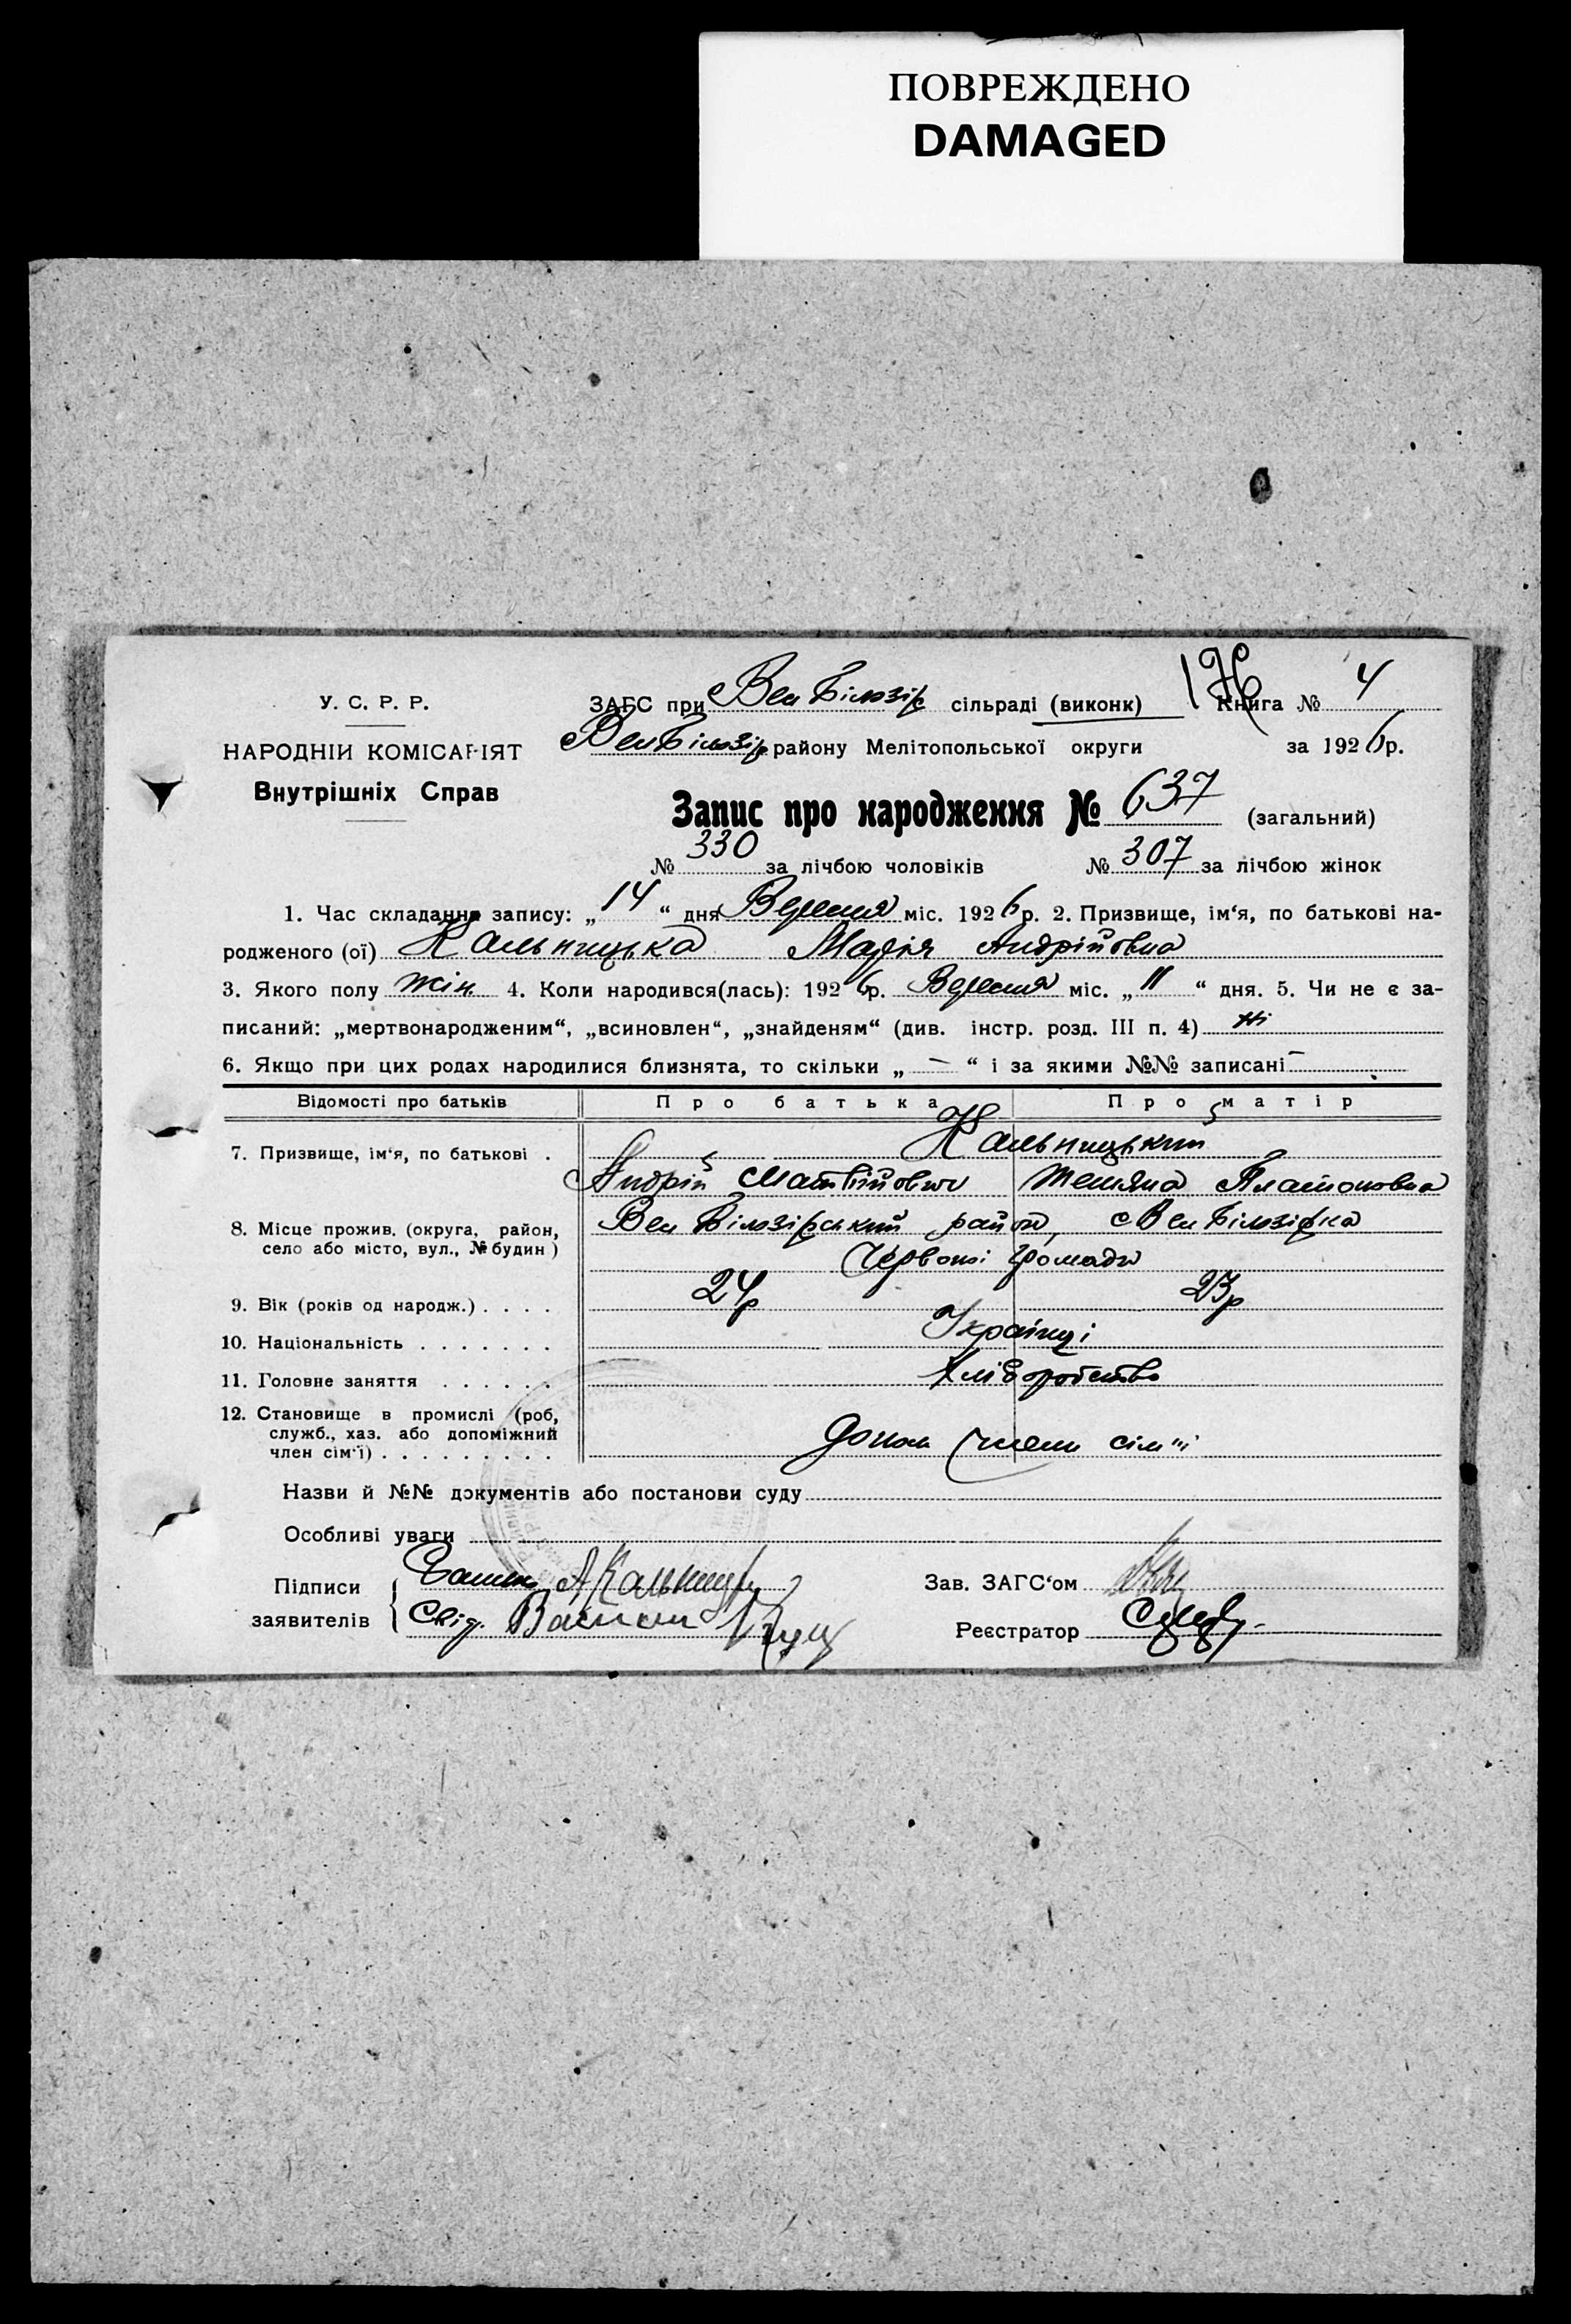 ПОВРЕЖДЕНО
DAMAGED
У. С. Р. Р.
НАРОДНІЙ КОМІСАРІЯТ
Внутрішніх Справ
ЗАГС при Вел Білозір сільраді (виконк) Книга № 4
Вел Білозір району Мелітопольської округи за 1926 р.
Запис про народження № 637 (загальний)
№ 330 за лічбою чоловіків № 307 за лічбою жінок
1. Час складання запису: „14“ дня Вересня міс. 1926 р. 2. Призвище, ім‘я, по батькові на-
родженого (ої) Кальницька Марія Андрійовна
3. Якого полу жін. 4. Коли народився(лась): 1926 р. Вересня міс. „11“ дня. 5. Чи не є за-
писаний: „мертвонародженим“, „всиновлен“, „знайденям“ (див. інстр. розд. III п. 4) ні
6. Якщо при цих родах народилися близнята, то скільки „—“ і за якими №№ записані —
Відомості про батьків Про батька Про матір
7. Призвище, ім‘я, по батькові . Кальницький
Андрій Матвійович Тетяна Платоновна
8. Місце прожив. (округа, район, село або місто, вул., № будин) Вел Білозірський район, с Вел Білозірка
Червоної Громади
9. Вік (років од народж.) . . . . 24 р 23 р
10. Національність . . . . . . . Українці
11. Головне заняття . . . . . . Хліборобство
12. Становище в промислі (роб,
служб., хаз. або допоміжний
член сім‘ї) . . . . . . . . . члени сім"ї
Назви й №№ документів або постанови суду
Особливі уваги
Підписи А Кальниц Зав. ЗАГС‘ом
заявителів Свід. Реєстратор